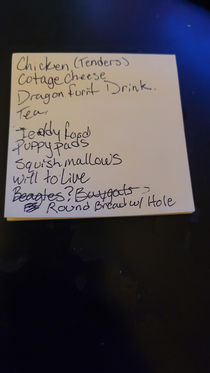 Chicken (Tenders)
Cotage Cheese
Dragon furit Drink.
Tea
Teddy food
Puppy pads
Squishmallows
Will to Live
Beagles? Baygots
Round Bread w/ Hole